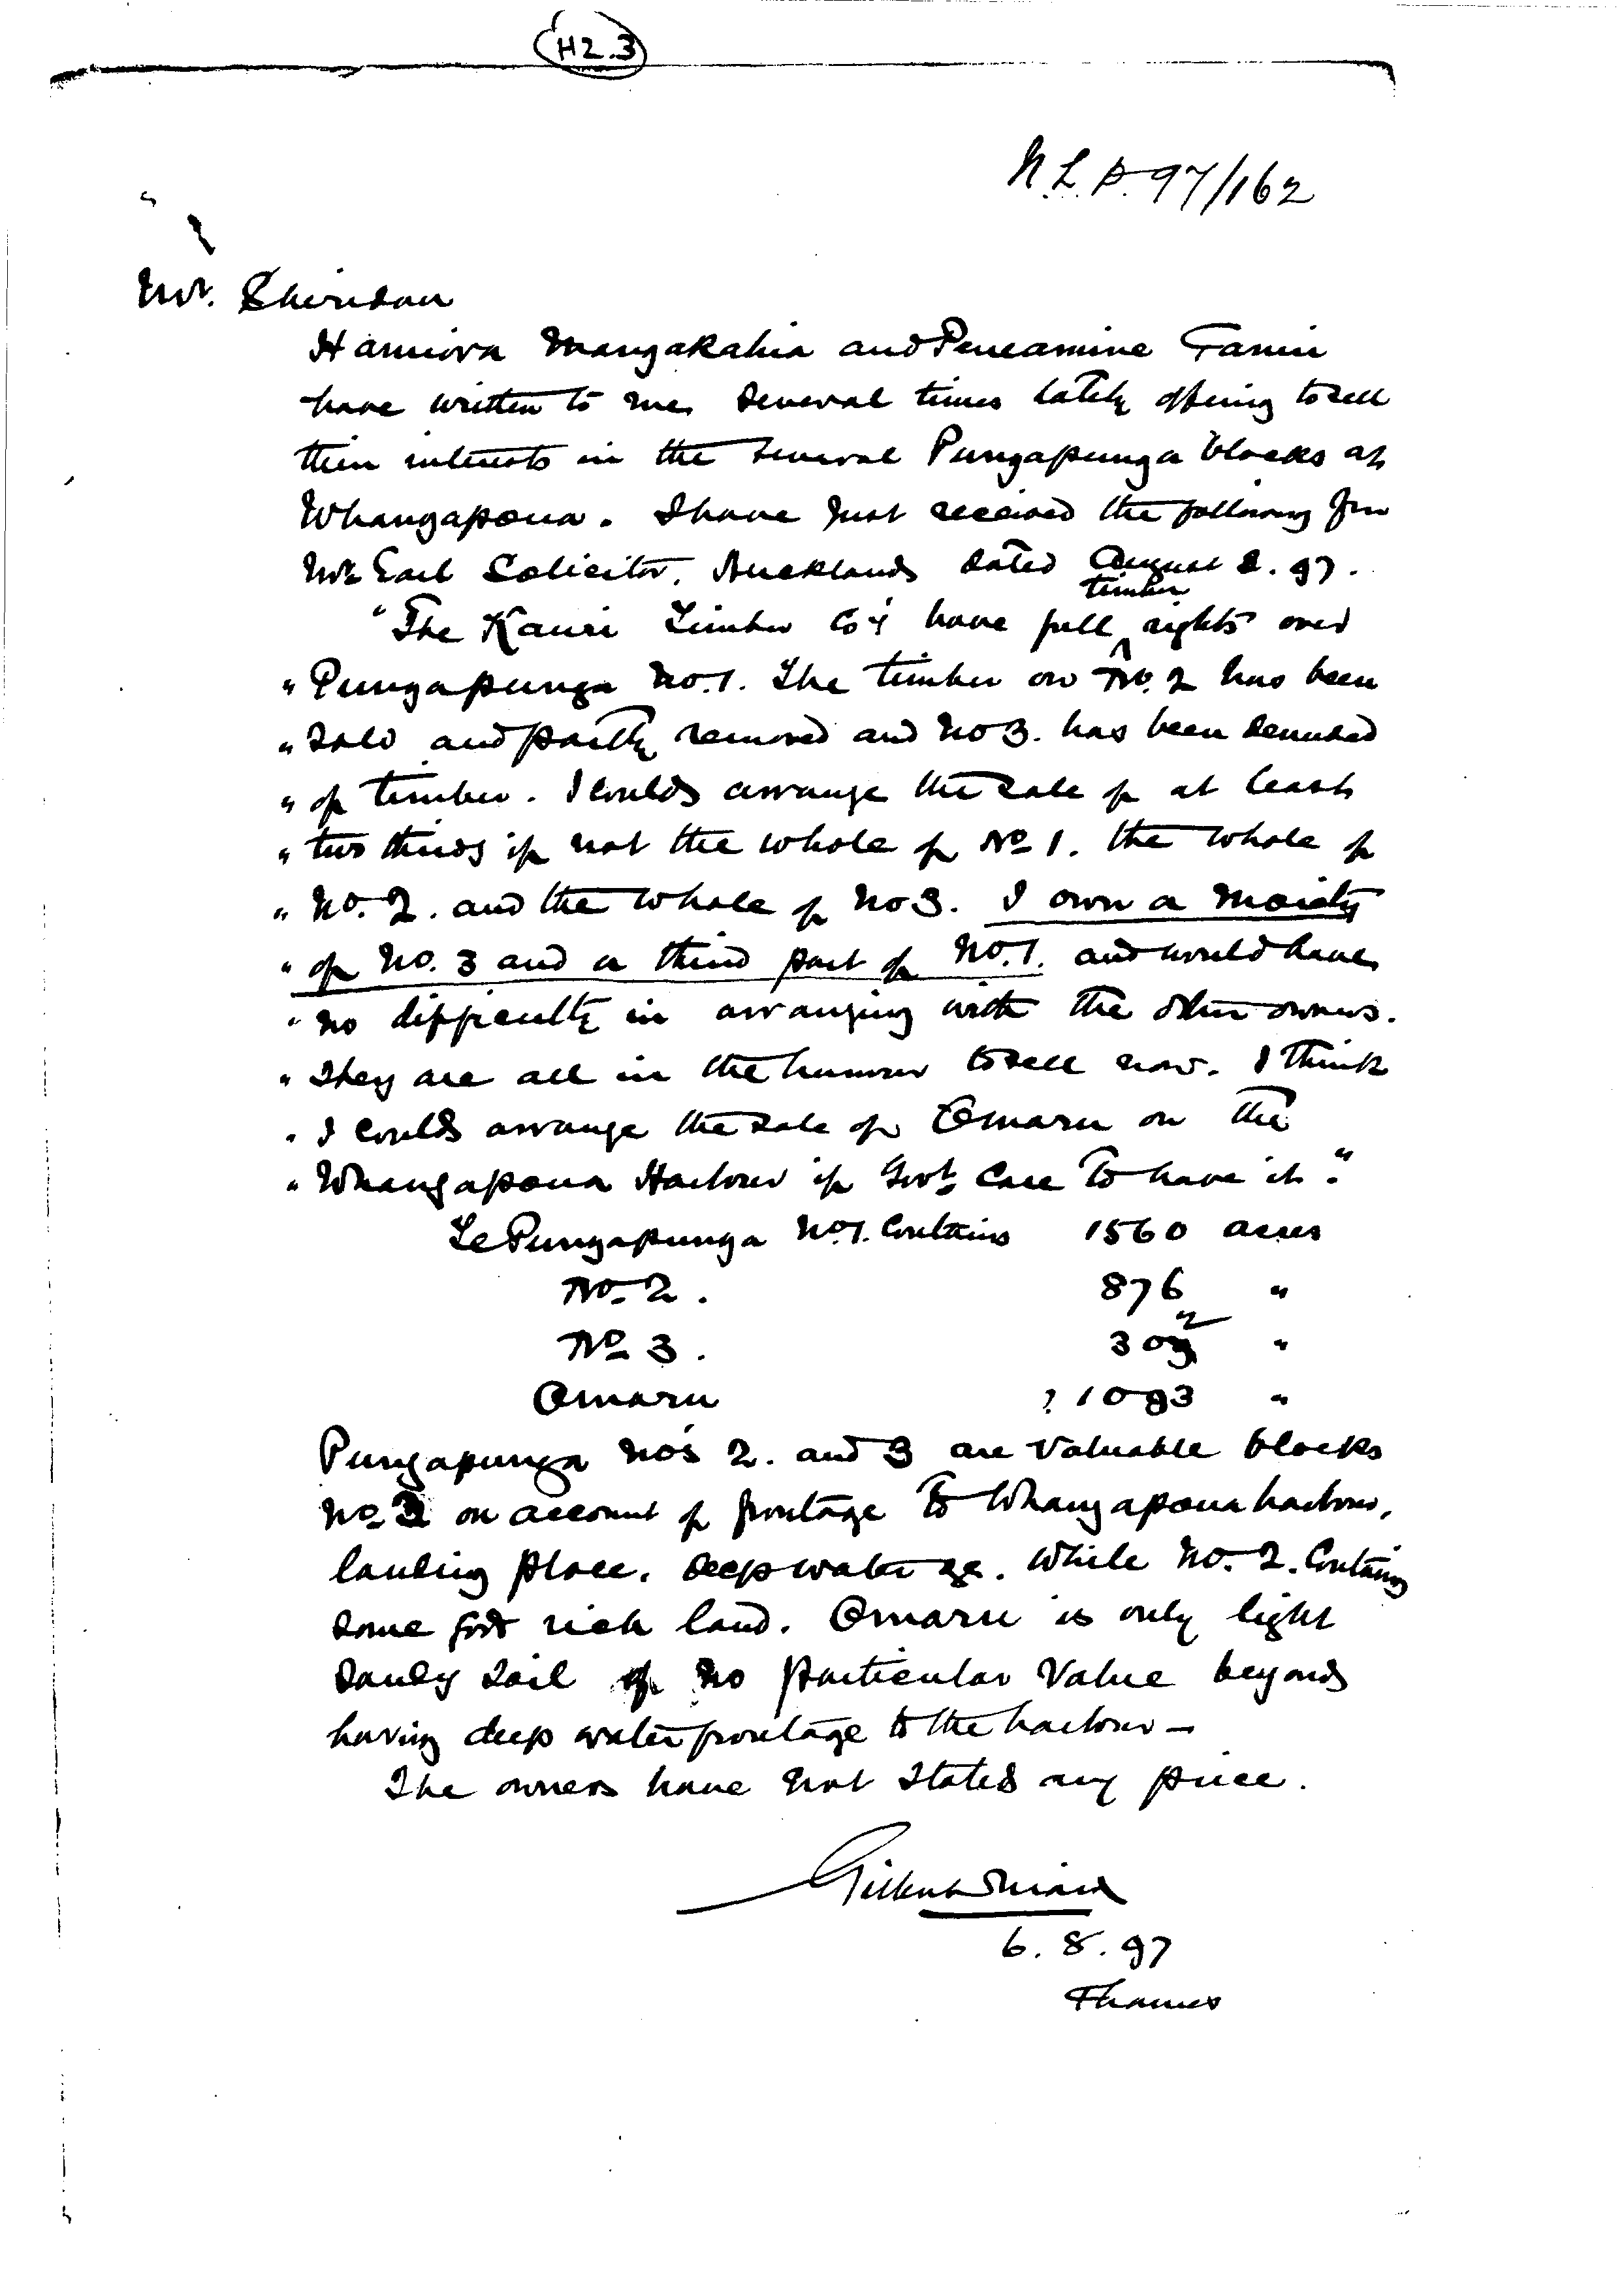 H2.3
N.L.P. 97/162
Mr. Sheridan
Hamiora Mangakahia and Peneamine Tanui
have written to me several times lately offering to sell
their interests in the several Pungapunga blocks at
Whangapoua. I have just received the following from
Mr Earl Solicitor, Auckland dated August 2. 97.
"The Kauri Timber Coy have full timber rights over
" Pungapunga No. 1. The timber on No. 2 has been
" sold and partly removed and No 3. has been denuded
" of timber. I could arrange the sale of at least
" two thirds if not the whole of No 1. the whole of
" No. 2. and the whole of No 3. I own a moiety
" of No. 3 and a third part of No. 1. and would have
" no difficulty in arranging with the other owners.
" They are all in the humour to sell now. I think
" I could arrange the sale of Omaru on the
" Whangapoua Harbour if Govt. care to have it."
Te Pungapunga No 1. Contains 1560 acres
No. 2. 876 "
No 3. 302 "
Omaru ? 1093 "
Pungapunga Nos 2. and 3 are valuable blocks
No 3 on account of frontage to Whangapoua harbour,
landing place, deep water &c. While No. 2. Contains
some good rich land. Omaru is only light
sandy soil of no particular value beyond
having deep water frontage to the harbour –
The owners have not stated any price.
Gilbert Mair
6. 8. 97
Thames